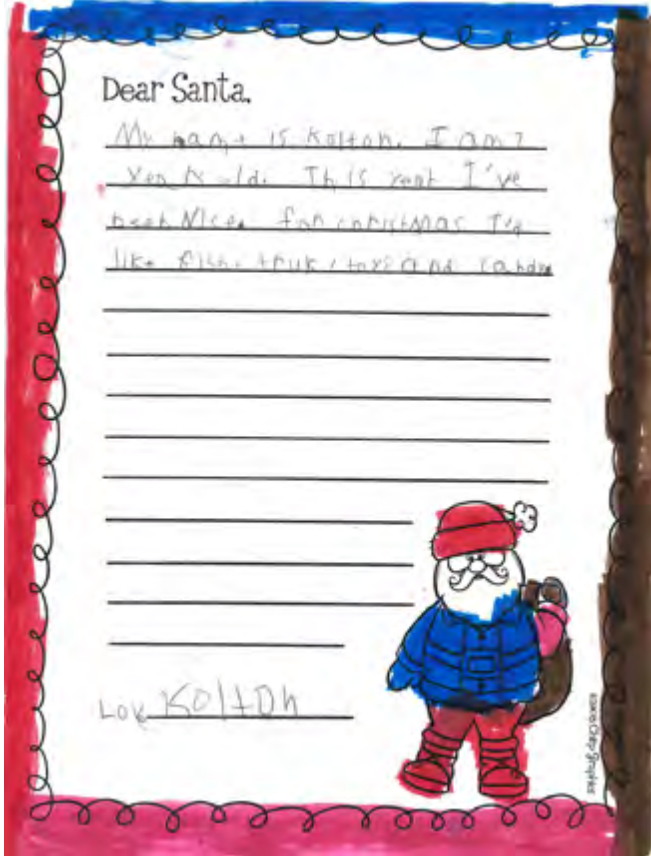 Dear Santa,
My name is Kolton. I am 7
years old. This year I've
been Nice. for christmas I'd
like fish, truk, toys and cande
Love Kolton